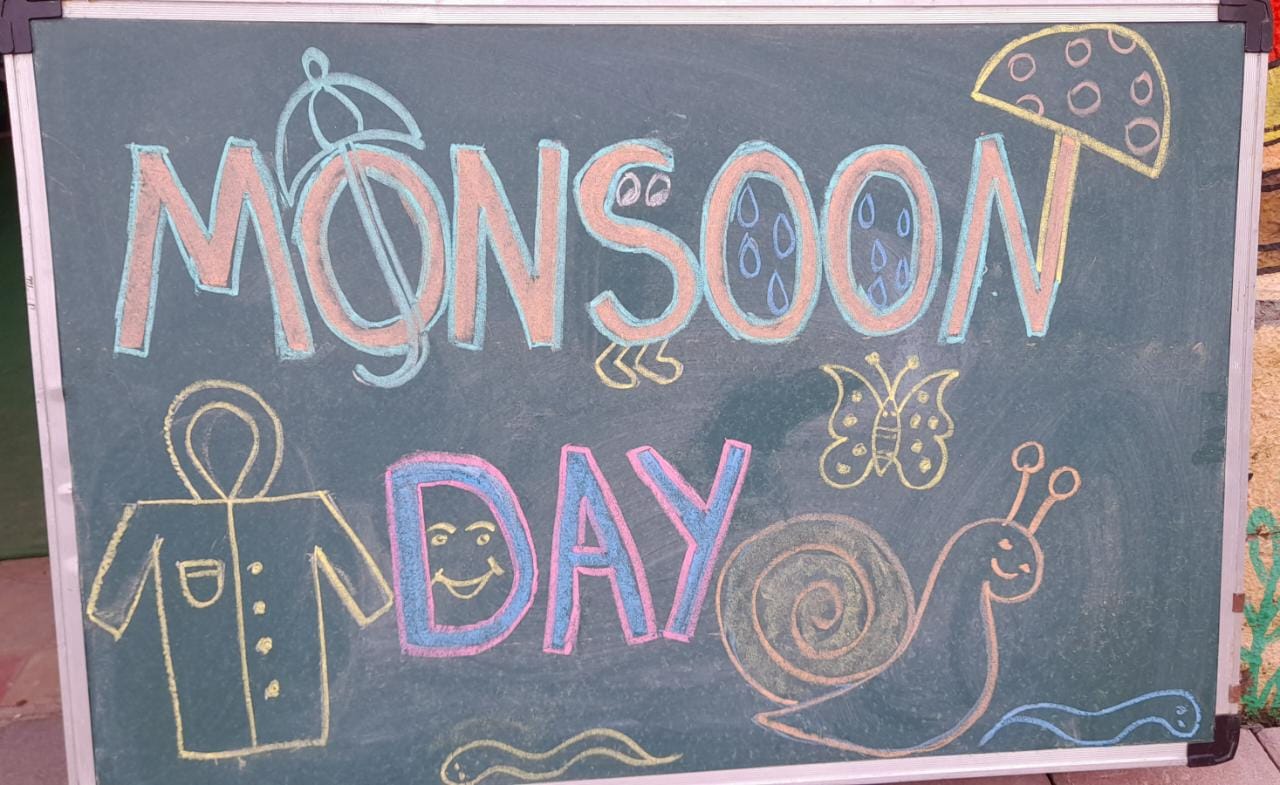 MONSOON
DAY